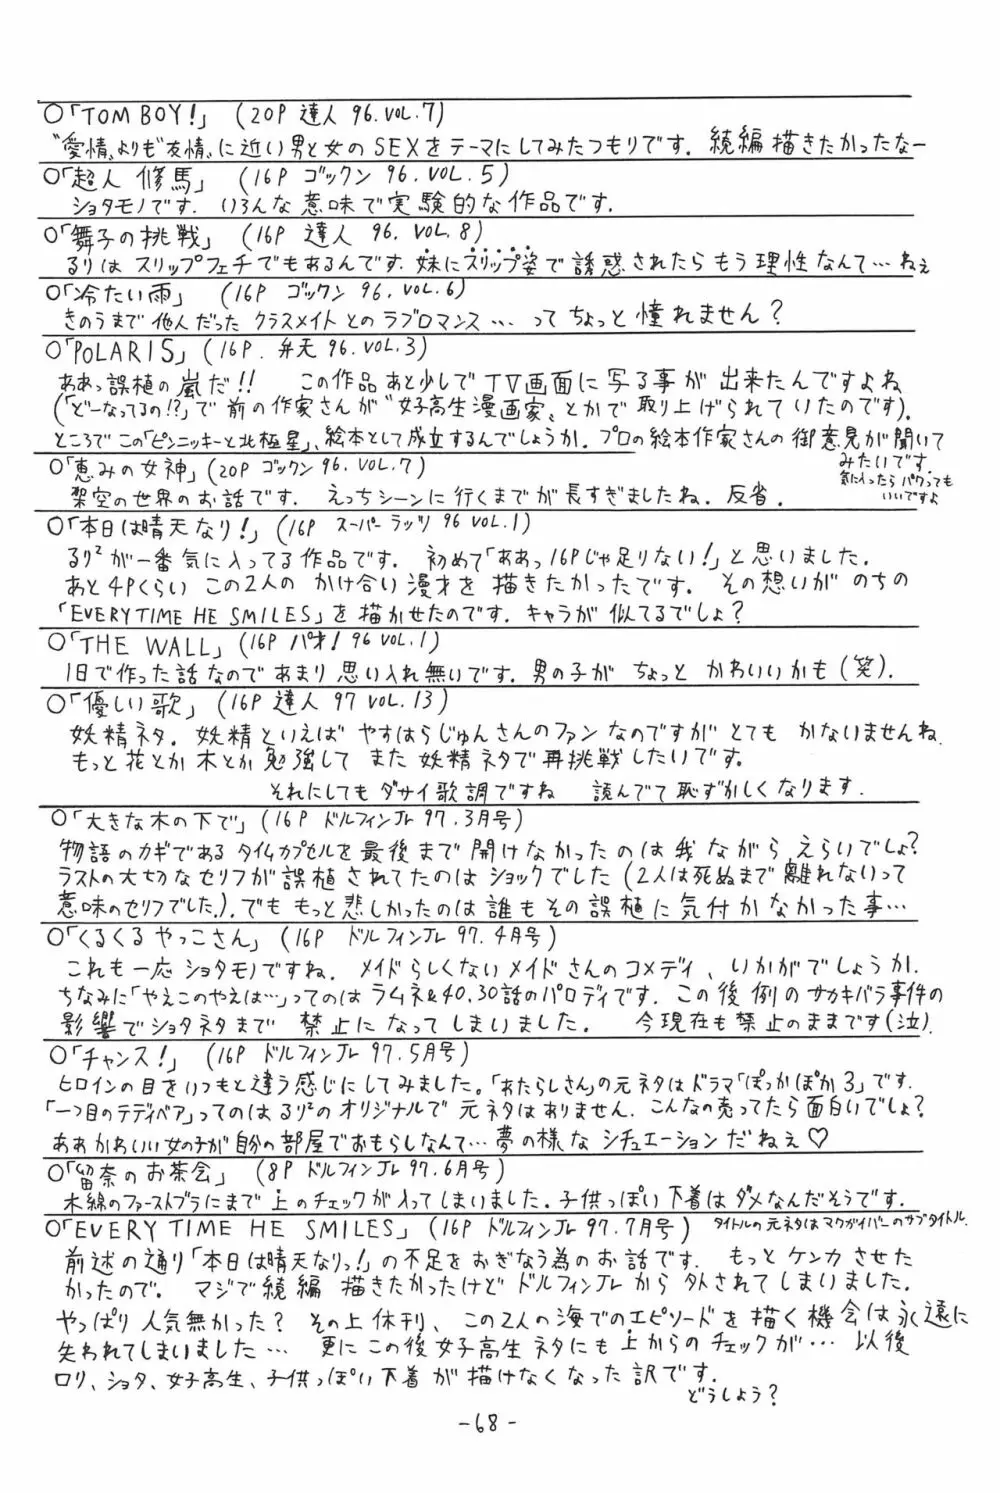 ○「TOM BOY!」 (20P 達人 96. VOL.7)
"愛情"よりも"友情"に近い男と女のSEXをテーマにしてみたつもりです. 続編描きたかったなー
○「超人 修馬」 (16P ゴックン 96. VOL.5)
ショタモノです. いろんな意味で実験的な作品です.
○「舞子の挑戦」 (16P 達人 96. VOL.8)
るりはスリップフェチでもあるんです. 妹にスリップ姿で誘惑されたらもう理性なんて…ねぇ
○「冷たい雨」 (16P ゴックン 96. VOL.6)
きのうまで他人だったクラスメイトとのラブロマンス…ってちょっと憧れません?
○「POLARIS」(16P. 弁天 96. VOL.3)
ああっ誤植の嵐だ!! この作品あと少しでTV画面に写る事が出来たんですよね
(「どーなってるの!?」で前の作家さんが"女子高生漫画家"とかで取り上げられていたのです).
ところでこの「ピンニッキーと北極星」、絵本として成立するんでしょうか. プロの絵本作家さんの御意見が聞いて
みたいです.
気に入ったらパクっても
いいですよ
○「恵みの女神」(20P ゴックン 96. VOL.7)
架空の世界のお話です. えっちシーンに行くまでが長すぎましたね. 反省.
○「本日は晴天なり!」(16P スーパーラッツ 96 VOL.1)
るり²が一番気に入ってる作品です. 初めて「ああっ16Pじゃ足りない!」と思いました.
あと4Pくらいこの2人のかけ合い漫才を描きたかったです. その想いがのちの
「EVERYTIME HE SMILES」を描かせたのです. キャラが似てるでしょ?
○「THE WALL」(16P パオ! 96 VOL.1)
1日で作った話なのであまり思い入れ無いです. 男の子がちょっとかわいいかも(笑).
○「優しい歌」 (16P 達人 97 VOL.13)
妖精ネタ. 妖精といえばやすはらじゅんさんのファンなのですがとてもかないませんね.
もっと花とか木とか勉強してまた妖精ネタで再挑戦したいです.
それにしてもダサイ歌詞ですね 読んでて恥ずかしくなります.
○「大きな木の下で」(16P ドルフィンJr 97. 3月号)
物語のカギであるタイムカプセルを最後まで開けなかったのは我ながらえらいでしょ?
ラストの大切なセリフが誤植されてたのはショックでした(2人は死ぬまで離れないって
意味のセリフでした.). でももっと悲しかったのは誰もその誤植に気付かなかった事…
○「くるくるやっこさん」(16P ドルフィンJr 97. 4月号)
これも一応ショタモノですね. メイドらしくないメイドさんのコメディ、いかがでしょうか.
ちなみに「やえこのやえは…」ってのはラムネ&40.30話のパロディです. この後例のサカキバラ事件の
影響でショタネタまで禁止になってしまいました. 今現在も禁止のままです(泣).
○「チャンス!」 (16P ドルフィンJr 97. 5月号)
ヒロインの目をいつもと違う感じにしてみました。「あたらしさん」の元ネタはドラマ「ぽっかぽか3」です.
「一つ目のテディベア」ってのはるり²のオリジナルで元ネタはありません. こんなの売ってたら面白いでしょ?
ああかわいい女の子が自分の部屋でおもらしなんて…夢の様なシチュエーションだねぇ♡
○「留奈のお茶会」 (8P ドルフィンJr 97. 6月号)
木綿のファーストブラにまで上のチェックが入ってしまいました. 子供っぽい下着はダメなんだそうです.
○「EVERYTIME HE SMILES」(16P ドルフィンJr 97. 7月号) タイトルの元ネタはマクガイバーのサブタイトル.
前述の通り「本日は晴天なりっ!」の不足をおぎなう為のお話です. もっとケンカさせた
かったので. マジで続編描きたかったけどドルフィンJrから外されてしまいました.
やっぱり人気無かった? その上休刊、この2人の海でのエピソードを描く機会は永遠に
失われてしまいました… 更にこの後女子高生ネタにも上からのチェックが… 以後
ロリ、ショタ、女子高生、子供っぽい下着が描けなくなった訳です.
どうしよう?
-68-